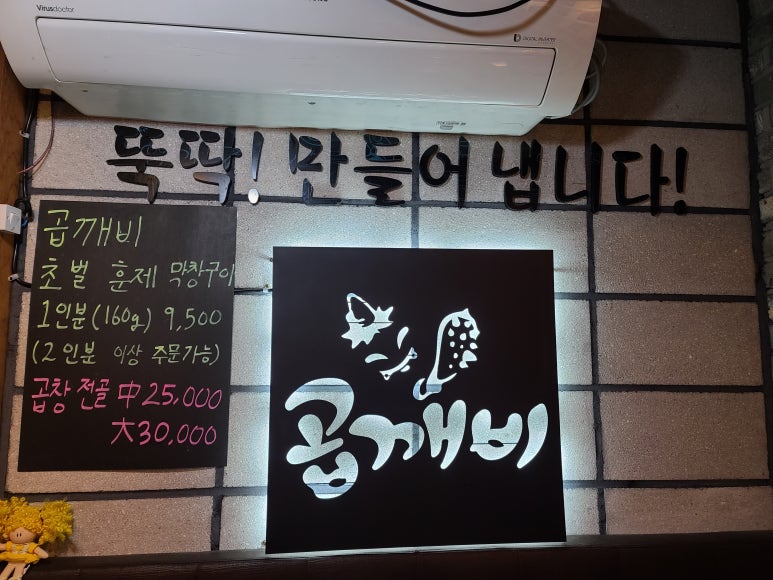 Virusdoctor
DIGITAL INVERTER
뚝딱! 만들어 냅니다!
곱깨비
초벌 훈제 막창구이
1인분(160g) 9,500
(2인분 이상 주문가능)
곱창전골 中 25,000
大 30,000
곱깨비